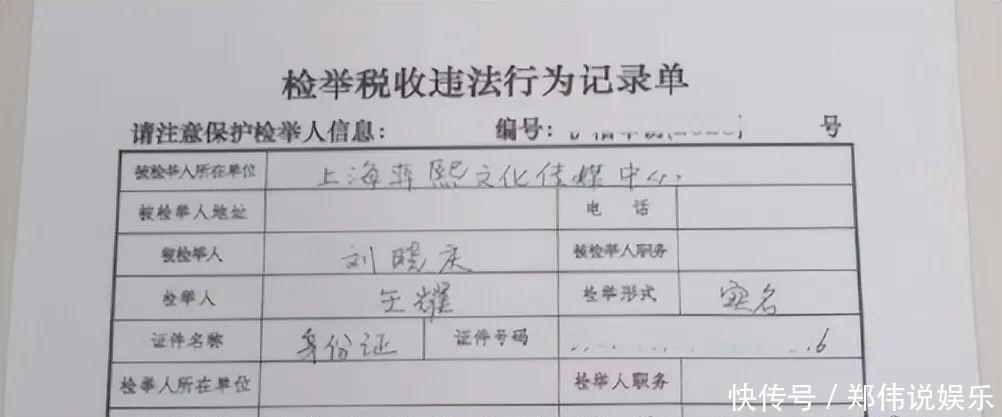 检举税收违法行为记录单
请注意保护检举人信息: 编号: 号
被检举人所在单位 上海 熙文化传媒中心
被检举人地址 电 话
被检举人 刘晓庆 被检举人职务
检举人 王耀 检举形式 实名
证件名称 身份证 证件号码 6
检举人所在单位 检举人职务
快传号 / 郑伟说娱乐